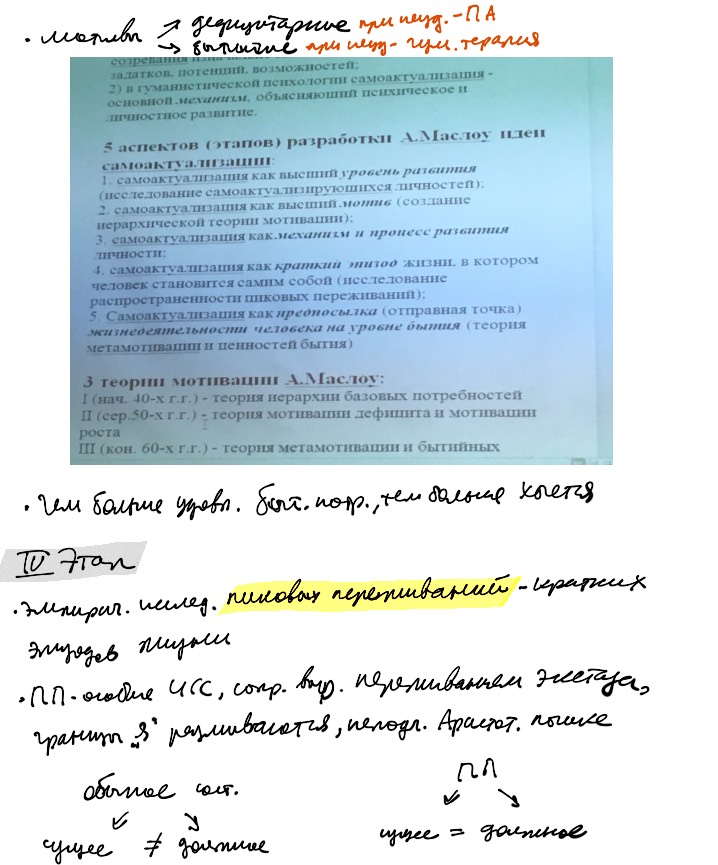 • мотивы ↗ дефицитарные при неуд. - ПА
→ бытийные при неуд - гум. терапия
созревания
задатков, потенций, возможностей;
2) в гуманистической психологии самоактуализация -
основной механизм, объясняющий психическое и
личностное развитие.
5 аспектов (этапов) разработки А.Маслоу идеи
самоактуализации:
1. самоактуализация как высший уровень развития
(исследование самоактуализирующихся личностей);
2. самоактуализация как высший мотив (создание
иерархической теории мотивации);
3. самоактуализация как механизм и процесс развития
личности;
4. самоактуализация как краткий эпизод жизни, в котором
человек становится самим собой (исследование
распространенности пиковых переживаний);
5. Самоактуализация как предпосылка (отправная точка)
жизнедеятельности человека на уровне бытия (теория
метамотивации и ценностей бытия)
3 теории мотивации А.Маслоу:
I (нач. 40-х г.г.) - теория иерархии базовых потребностей
II (сер.50-х г.г.) - теория мотивации дефицита и мотивации
роста
III (кон. 60-х г.г.) - теория метамотивации и бытийных
• Чем больше удовл. быт. потр., тем больше хочется
IV Этап
• Эмпирич. исслед. пиковых переживаний - кратких
эпизодов жизни
• ПП - особые ИСС, сопр. выр. переживанием экстаза,
границы „Я" размываются, неподл. Аристот. логике
обычное сост.
сущее ≠ должное
ПП
сущее = должное